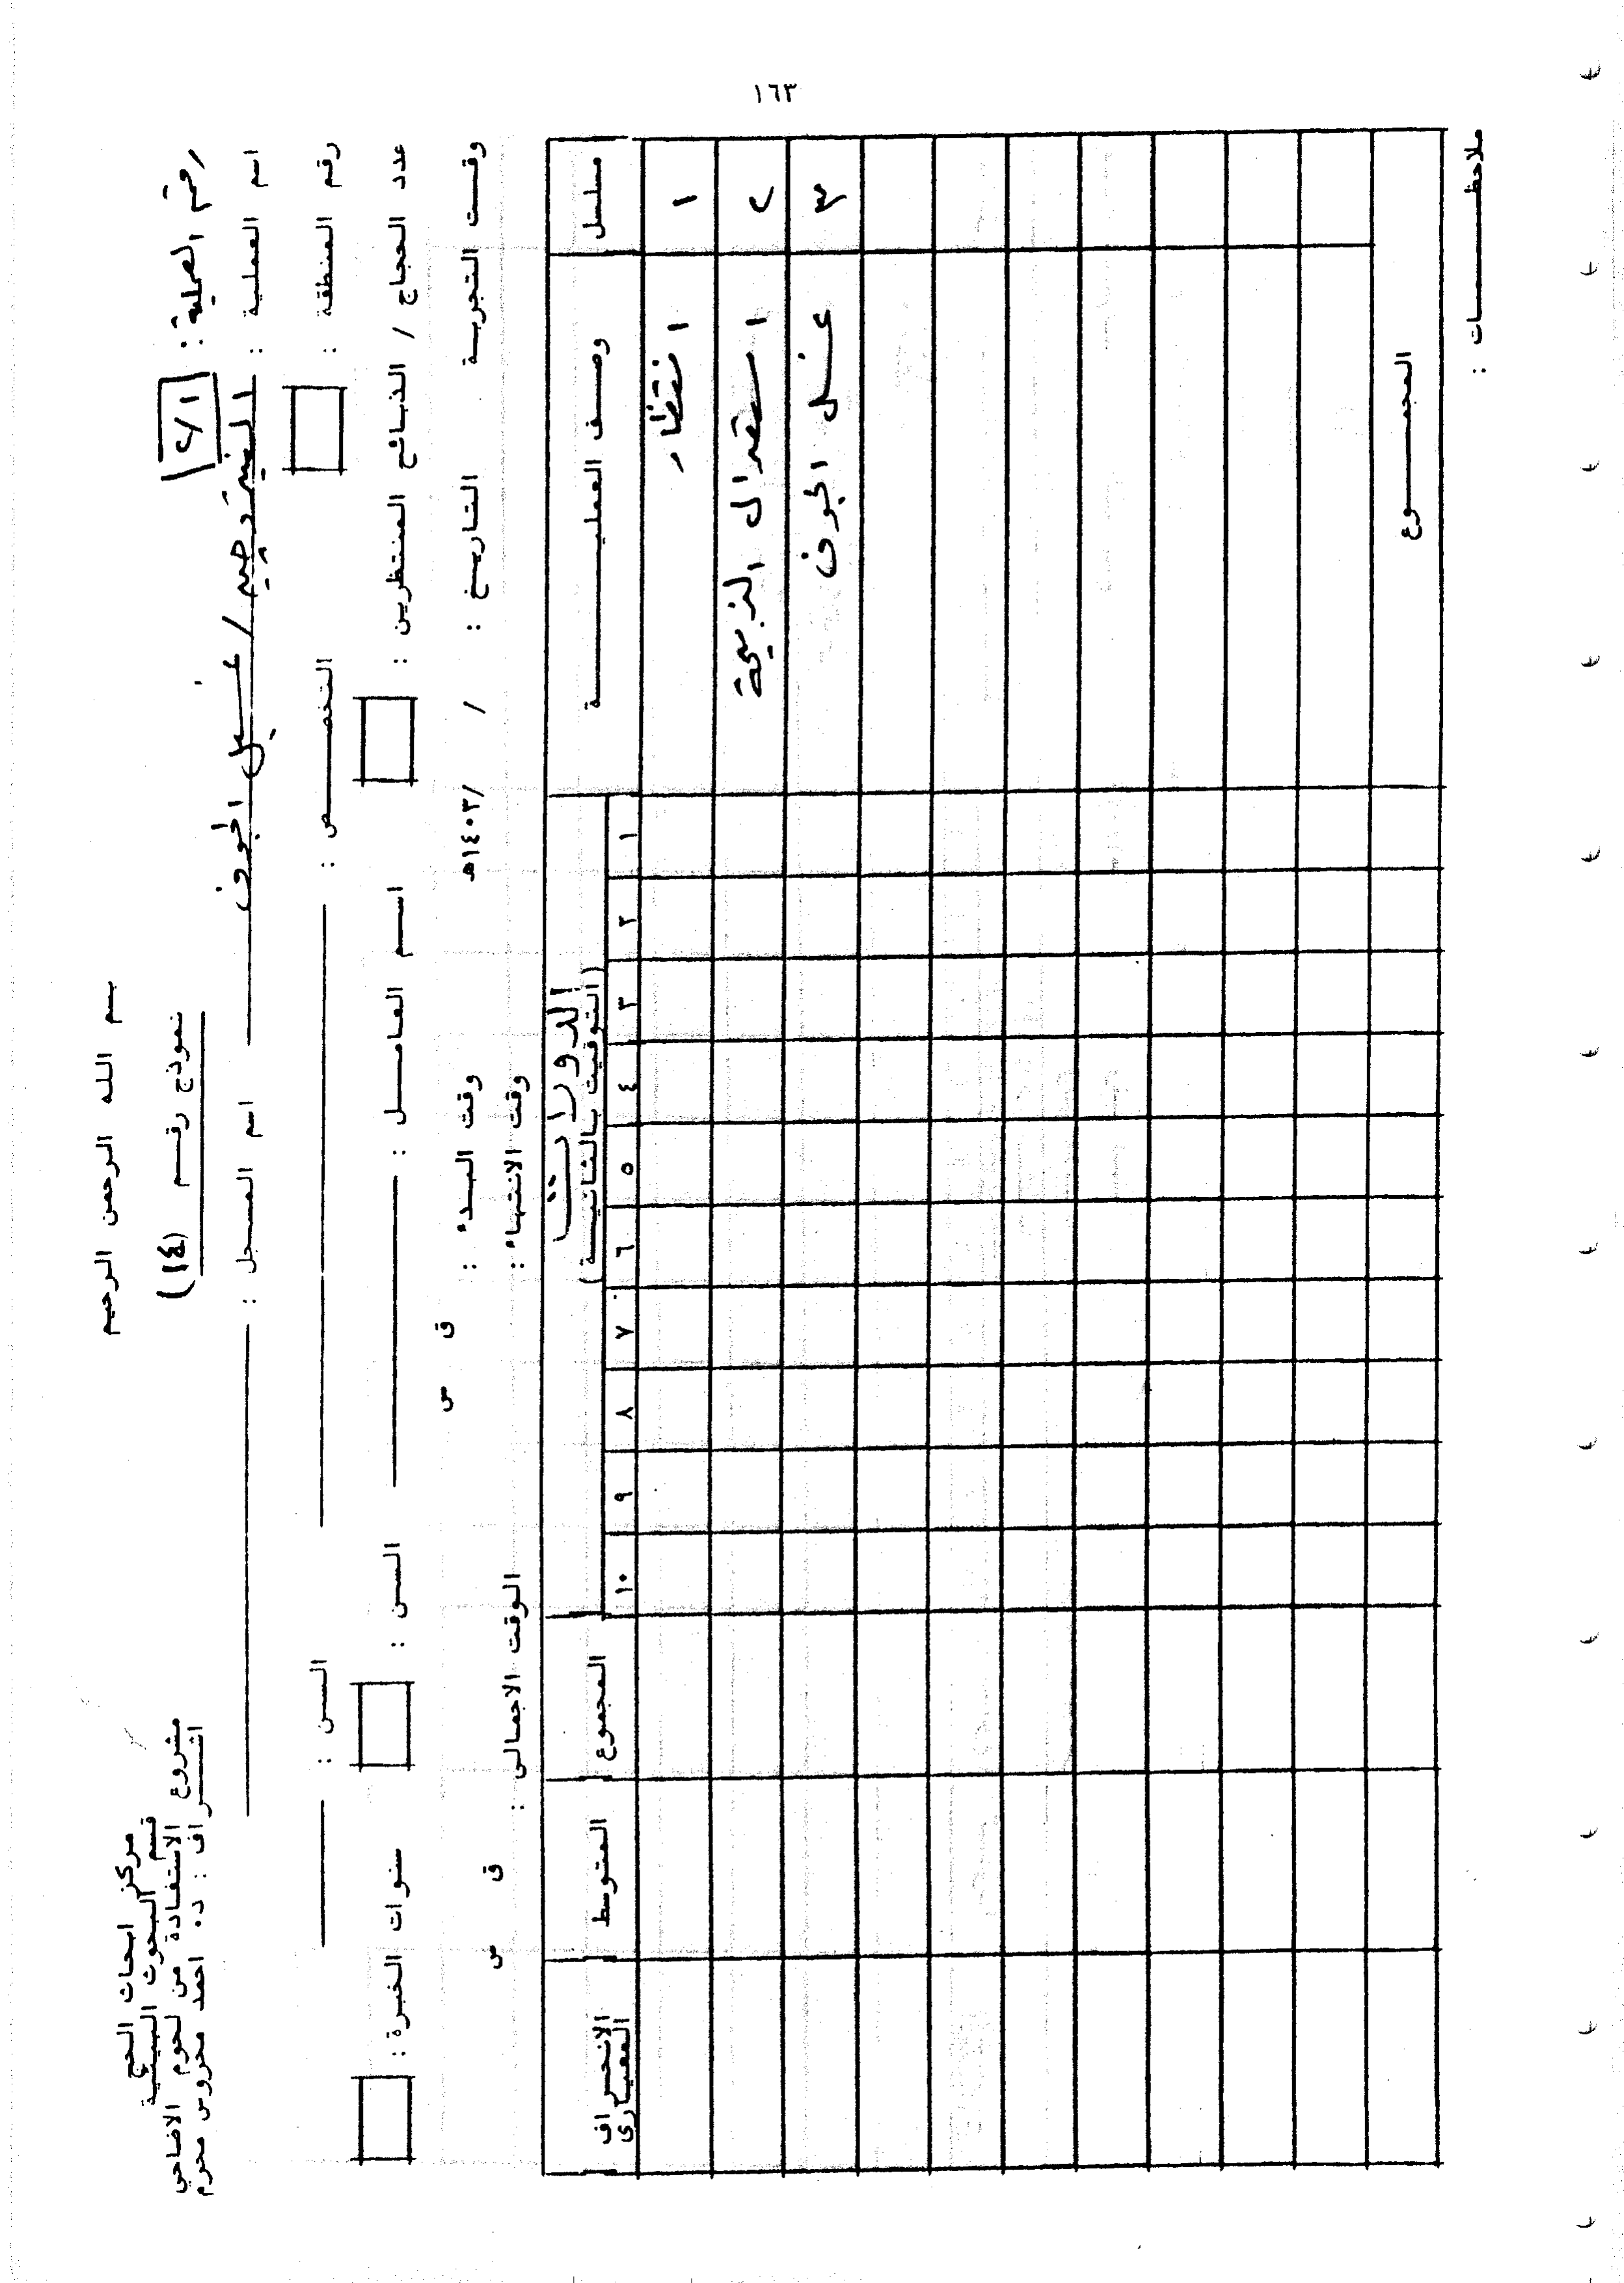 ١٦٣
بسم الله الرحمن الرحيم
مركز ابحاث الحج
قسم البحوث البيئية
مشروع الاستفادة من لحوم الاضاحي
اشراف : د. احمد محروس محرم
نموذج رقم (١٤)
رقم العملية : ١/٢
اسم العملية : / غسيل الجوف اسم المسجل :
رقم المنطقة : التخصص : السن :
عدد الحجاج / الذبائح المنتظرين : اسم العامل : السن : سنوات الخبرة :
وقت التجربة التاريخ : / /١٤٠٣هـ وقت البدء : ق س
وقت الانتهاء : الوقت الاجمالى : ق س
مسلسل وصف العمليـة الدورات (التوقيت بالثانية) المجموع المتوسط الانحراف المعيارى
١ ٢ ٣ ٤ ٥ ٦ ٧ ٨ ٩ ١٠
١ انتظار
٢ استقبال الذبيحة
٣ غسل الجوف
المجمـوع
ملاحظـات :